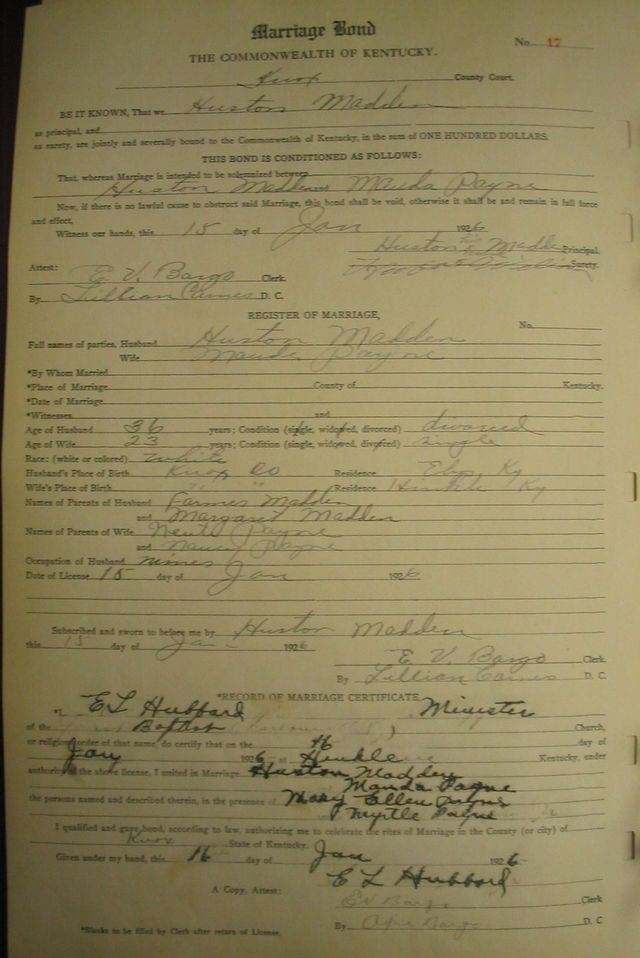 Marriage Bond
No. 17
THE COMMONWEALTH OF KENTUCKY.
Knox County Court.
BE IT KNOWN, That we Huston Madden
as principal, and
as surety, are jointly and severally bound to the Commonwealth of Kentucky, in the sum of ONE HUNDRED DOLLARS.
THIS BOND IS CONDITIONED AS FOLLOWS:
That, whereas Marriage is intended to be solemnized between
Huston Madden and Mauda Payne
Now, if there is no lawful cause to obstruct said Marriage, this bond shall be void, otherwise it shall be and remain in full force
and effect,
Witness our hands, this 15 day of Jan 1926
Huston Madden Principal.
Surety.
Attest: E. V. Bargo Clerk.
By Lillian D. C.
REGISTER OF MARRIAGE,
No.
Full names of parties, Husband Huston Madden
Wife Mauda Payne
*By Whom Married
*Place of Marriage County of Kentucky.
*Date of Marriage
*Witnesses and
Age of Husband 36 years; Condition (single, widowed, divorced) divorced
Age of Wife 23 years; Condition (single, widowed, divorced) single
Race: (white or colored) white
Husband's Place of Birth Knox Co Residence Ky
Wife's Place of Birth " " Residence Hinkle Ky
Names of Parents of Husband Farmer Madden
and Margaret Madden
Names of Parents of Wife Payne
and Nancy Payne
Occupation of Husband
Date of License 15 day of Jan 1926
Subscribed and sworn to before me by Huston Madden
this 15 day of Jan 1926
E. V. Bargo Clerk
By Lillian D. C.
*RECORD OF MARRIAGE CERTIFICATE
*I, E L Hubbard, Minister
of the Baptist Church,
or religious order of that name, do certify that on the 16 day of
Jan 1926 at Hinkle Kentucky, under
authority of the above license, I united in Marriage Huston Madden
Mauda Payne
the persons named and described therein, in the presence of Mary Ellen Payne
Myrtle Payne
I qualified and gave bond, according to law, authorizing me to celebrate the rites of Marriage in the County (or city) of
Knox State of Kentucky.
Given under my hand, this 16 day of Jan 1926
E L Hubbard
A Copy, Attest: EV Bargo Clerk
By Bargo D. C
*Blanks to be filled by Clerk after return of License.